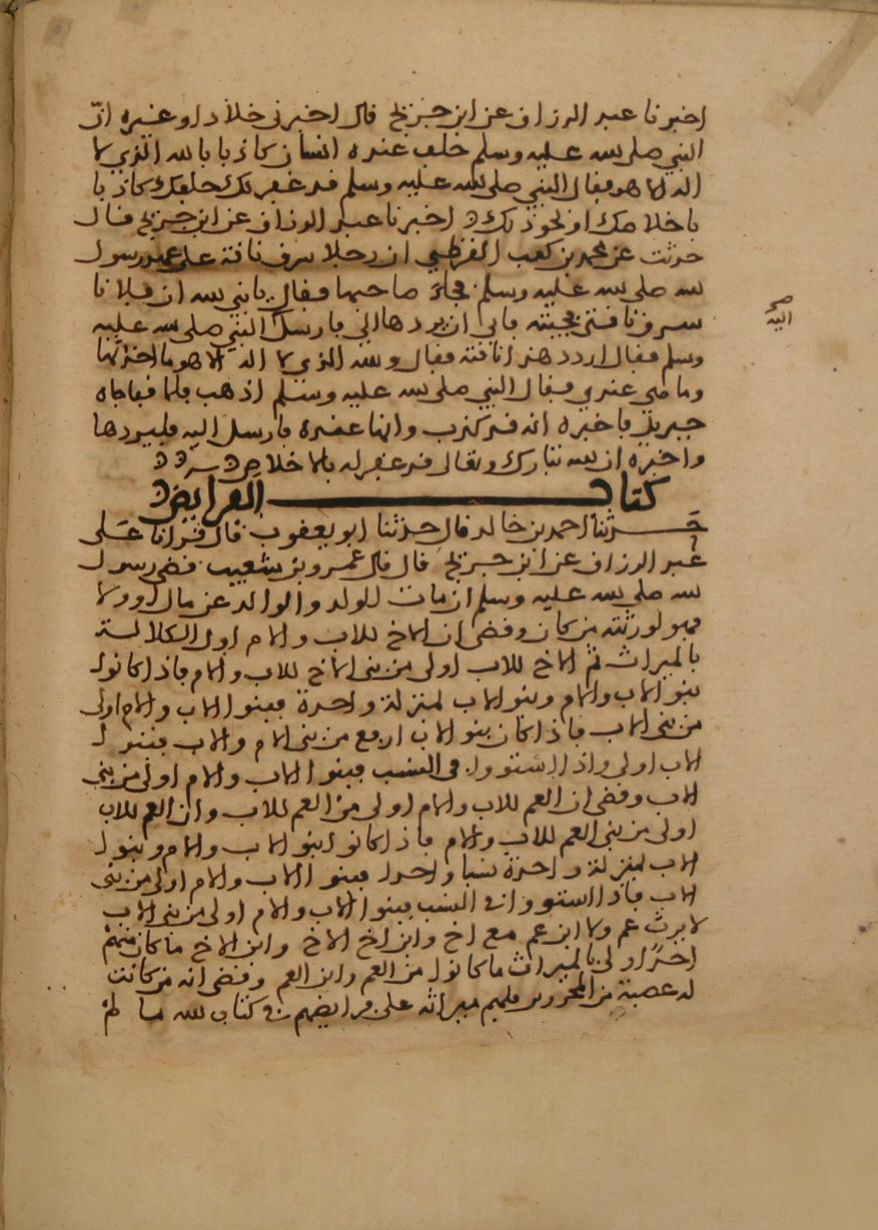 اخبرنا عبد الرزاق عن ابن جريج قال اخبرني خلاد او غيره ان
النبي صلى الله عليه وسلم حلف عنده انسان كاذبا بالله الذي لا
اله الا هو فقال النبي صلى الله عليه وسلم قد غفر لك حلفك كاذبا
باخلاصك او نحو ذلك اخبرنا عبد الرزاق عن ابن جريج قال
حدثت عن محمد بن كعب القرظي ان رجلا سرق ناقة على عهد رسول
الله صلى الله عليه وسلم فجاء صاحبها فقال يا نبي الله ان فلانا
سرق ناقتي فجئته فابى ان يردها الي فارسل النبي صلى الله عليه
اليه
وسلم فقال اردد هذا ناقته فقال والله الذي لا اله الا هو ما اخذتها
وما هي عندي فقال النبي صلى الله عليه وسلم اذهب فلما قفا جاه
جبريل فاخبره انه قد كذب وانها عنده فارسل اليه فليردها
واخبره ان الله تبارك وتعالى قد غفر له بالاخلاص
كتاب الفرايض
حدثنا احمد بن خالد قال حدثنا ابو يعقوب قال قرانا على
عبد الرزاق عن ابن جريج قال قال عمرو بن شعيب قضى رسول
الله صلى الله عليه وسلم ان مات الولد والوالد عن مال او ولا
فهو لورثته من كان وقضى ان الاخ للاب والام اولى الكلالة
بالميراث ثم الاخ للاب اولى من بني الاخ للاب والام فاذا كانوا
بنو الاب والام وبنو الاب بمنزلة واحدة فبنوا الاب والام اولى
من بني الاب فاذا كان بنو الاب ارفع من بني الام والاب فبنوا
الاب اولى واذا استووا في النسب فبنوا الاب والام اولى من بني
الاب وقضى ان العم للاب والام اولى من العم للاب وان العم للاب
اولى من بني العم للاب والام فاذا كانوا بنو الاب والام وبنوا
الاب بمنزلة واحدة نسبا واحدا فبنوا الاب والام اولى من بني
الاب فاذا استووا في النسب فبنوا الاب والام اولى من بني الاب
لا يرث عم ولا ابن عم مع اخ وابن اخ الاخ وابن الاخ ما كان منهم
احد اولى بالميراث ما كانوا من العم وابن العم وقضى انه من كانت
له عصبة من المحررين فلهم ميراثه على فرايضهم في كتاب الله ما لم